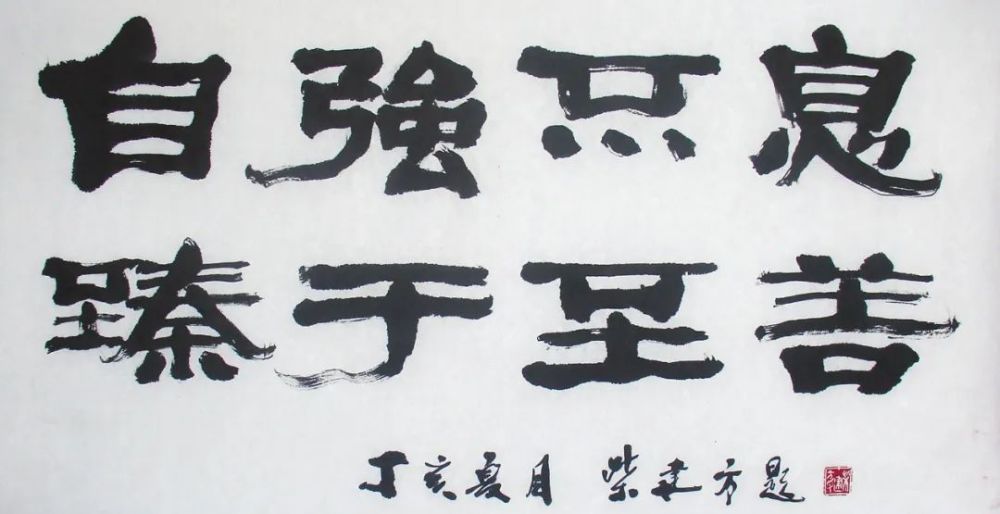 自強不息
臻于至善
丁亥夏月 柴建方題